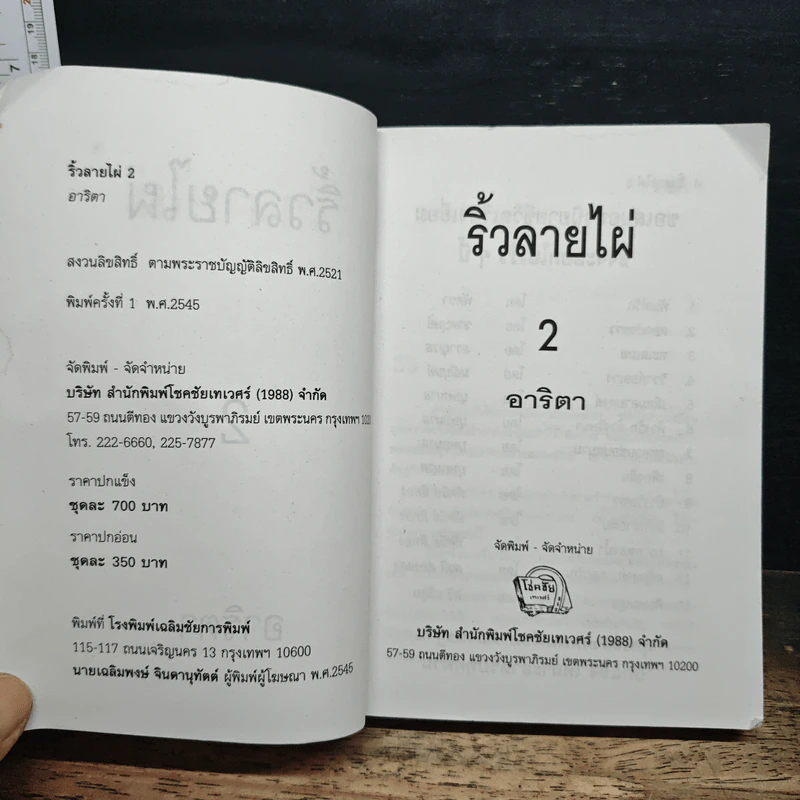 ริ้วลายไผ่ 2
อาริตา
สงวนลิขสิทธิ์ ตามพระราชบัญญัติลิขสิทธิ์ พ.ศ.2521
พิมพ์ครั้งที่ 1 พ.ศ.2545
จัดพิมพ์ - จัดจำหน่าย
บริษัท สำนักพิมพ์โชคชัยเทเวศร์ (1988) จำกัด
57-59 ถนนตีทอง แขวงวังบูรพาภิรมย์ เขตพระนคร กรุงเทพฯ 10200
โทร. 222-6660, 225-7877
ราคาปกแข็ง
ชุดละ 700 บาท
ราคาปกอ่อน
ชุดละ 350 บาท
พิมพ์ที่ โรงพิมพ์เฉลิมชัยการพิมพ์
115-117 ถนนเจริญนคร 13 กรุงเทพฯ 10600
นายเฉลิมพงษ์ จินดานุทัตต์ ผู้พิมพ์ผู้โฆษณา พ.ศ.2545
ริ้วลายไผ่
2
อาริตา
จัดพิมพ์ - จัดจำหน่าย
โชคชัย
เทเวศร์
บริษัท สำนักพิมพ์โชคชัยเทเวศร์ (1988) จำกัด
57-59 ถนนตีทอง แขวงวังบูรพาภิรมย์ เขตพระนคร กรุงเทพฯ 10200